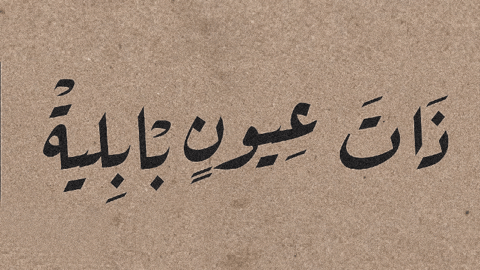 ذَاتَ عِيونٍ بْابِليةْ